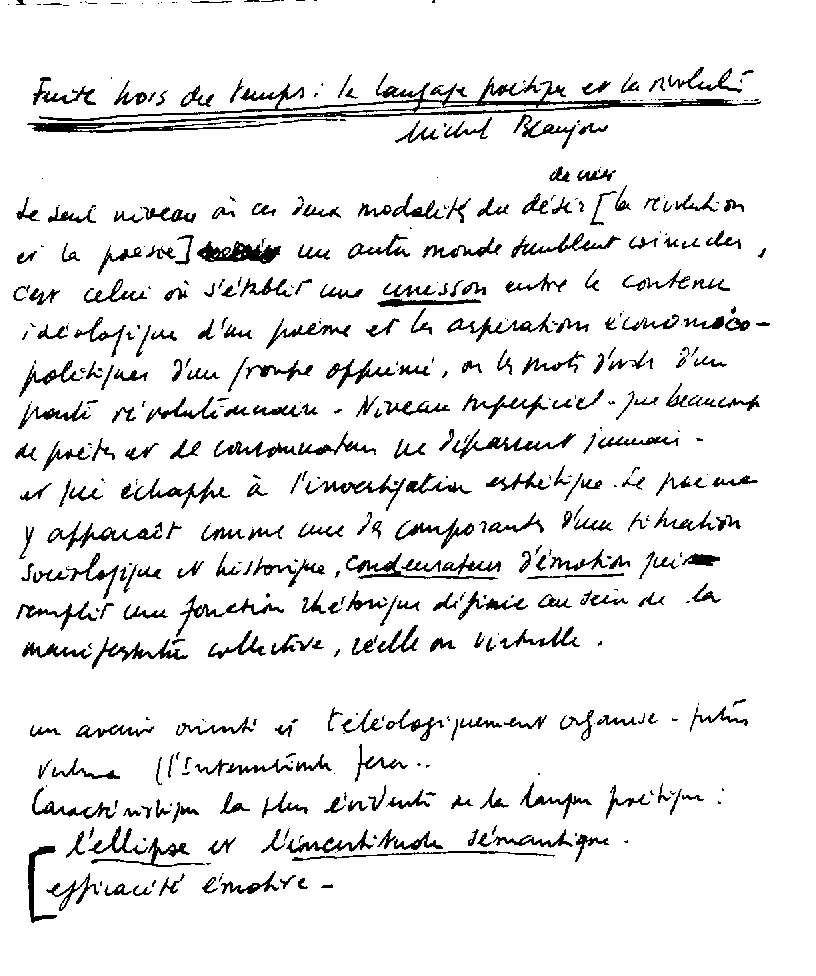 Fuite hors du temps : le langage poétique et la révolution
Michel Beaujour
de créer
Le seul niveau où ces deux modalités du désir [la révolution
et la poésie] un autre monde semblent coïncider,
c'est celui où s'établit une unisson entre le contenu
idéologique d'un poème et les aspirations économico-
politiques d'un groupe opprimé, ou les mots d'ordre d'un
parti révolutionnaire - Niveau superficiel - que beaucoup
de poètes et de consommateurs ne dépassent jamais -
et qui échappe à l'investigation esthétique. Le poème
y apparaît comme une des composantes d'une situation
sociologique et historique, condensateur d'émotion qui
remplit une fonction rhétorique définie au sein de la
manifestation collective, réelle ou virtuelle.
un avenir orienté et téléologiquement organisé - futurs
(l'Internationale sera..
Caractéristique la plus évidente de la langue poétique :
l'ellipse et l'incertitude sémantique.
efficacité émotive -